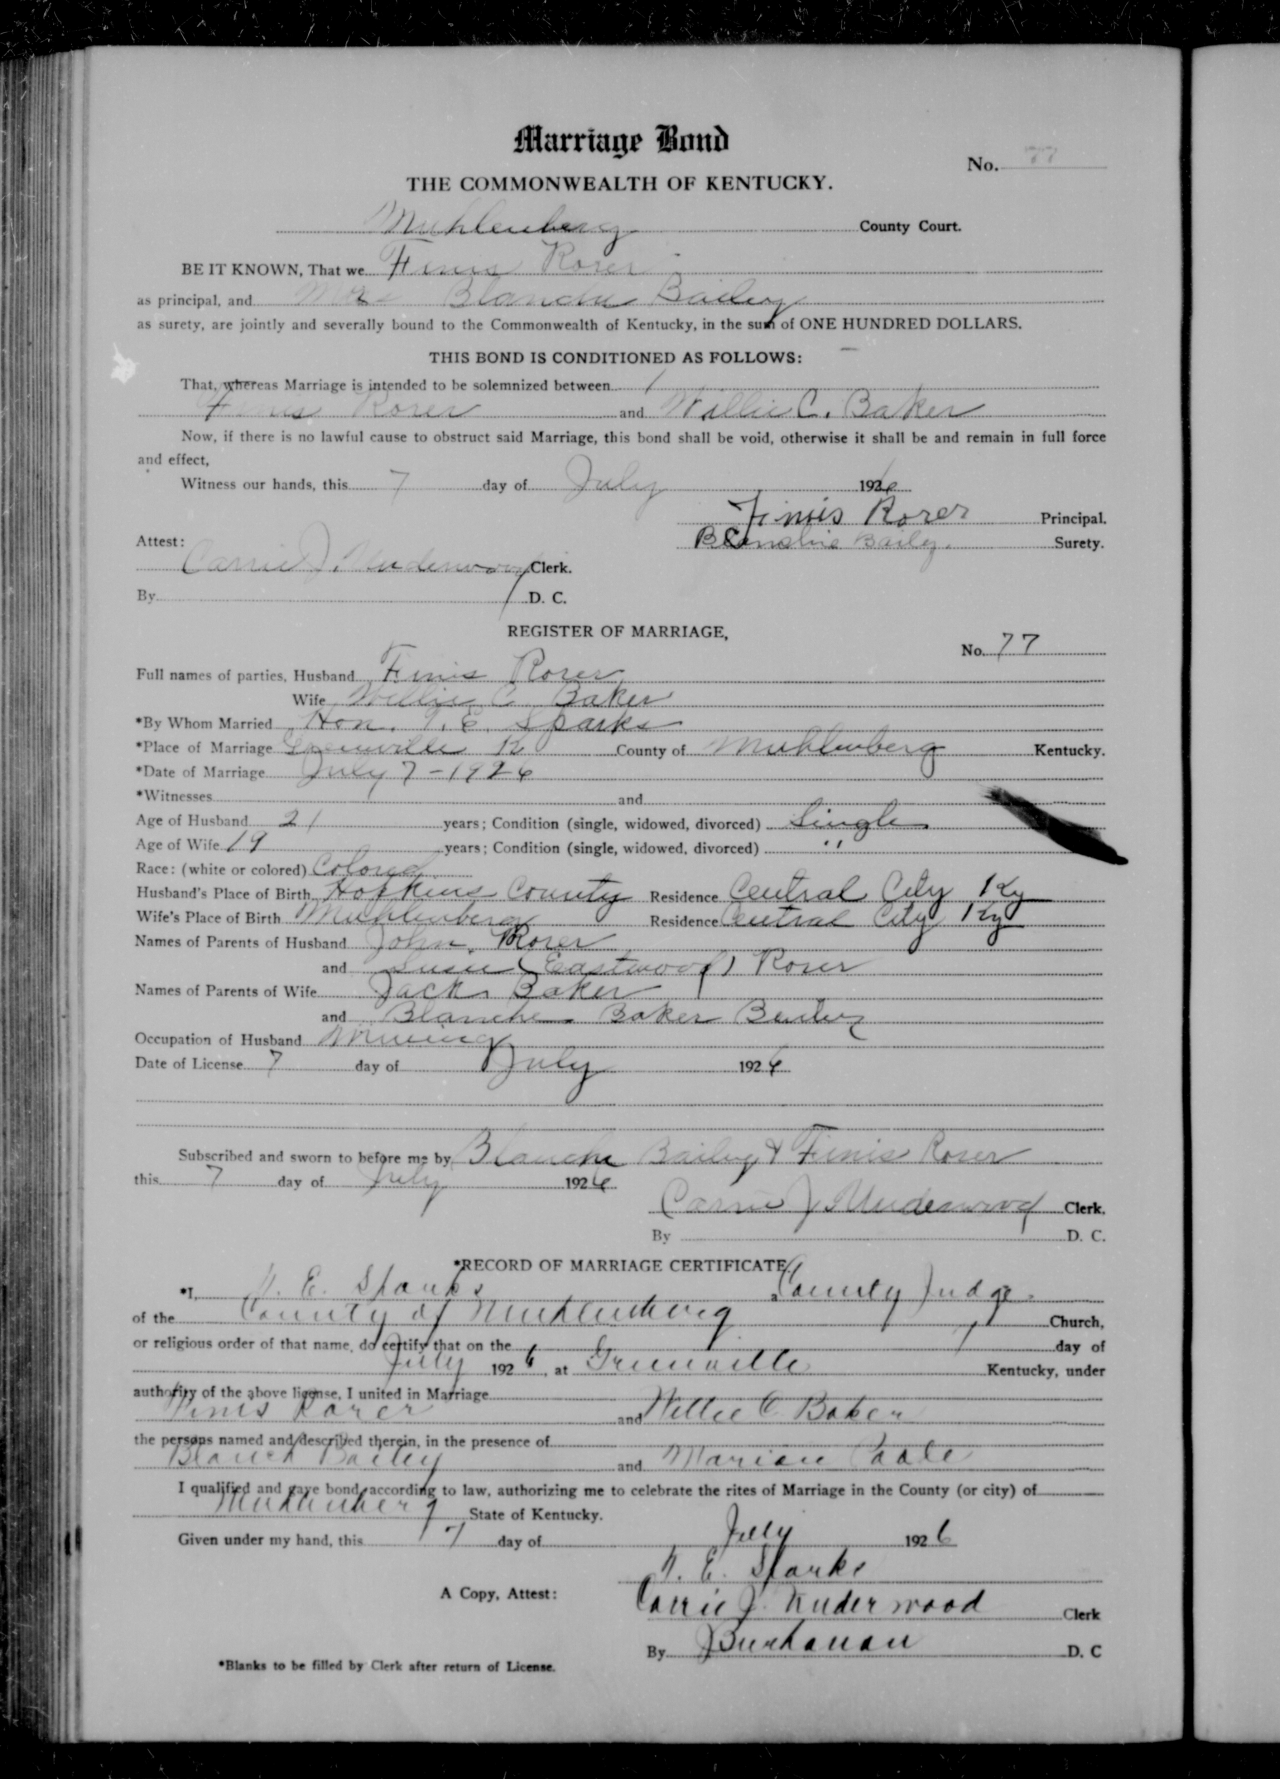 Marriage Bond
No. 77
THE COMMONWEALTH OF KENTUCKY.
Muhlenberg County Court.
BE IT KNOWN, That we Finis Rorer
as principal, and Mrs Blanche Bailey
as surety, are jointly and severally bound to the Commonwealth of Kentucky, in the sum of ONE HUNDRED DOLLARS.
THIS BOND IS CONDITIONED AS FOLLOWS:
That, whereas Marriage is intended to be solemnized between
Finis Rorer and Willie C. Baker
Now, if there is no lawful cause to obstruct said Marriage, this bond shall be void, otherwise it shall be and remain in full force
and effect,
Witness our hands, this 7 day of July 1926
Finis Rorer Principal.
Attest: Blanche Baily. Surety.
Carrie J. Underwood Clerk.
By D. C.
REGISTER OF MARRIAGE,
No. 77
Full names of parties, Husband Finis Rorer
Wife Willie C Baker
*By Whom Married Hon. E. Sparks
*Place of Marriage Greenville K County of Muhlenberg Kentucky.
*Date of Marriage July 7-1926
*Witnesses and
Age of Husband 21 years; Condition (single, widowed, divorced) Single
Age of Wife 19 years; Condition (single, widowed, divorced) "
Race: (white or colored) Colored
Husband's Place of Birth Hopkins County Residence Central City Ky
Wife's Place of Birth Muhlenberg Residence Central City Ky
Names of Parents of Husband John Rorer
and Susie (Eastwood) Rorer
Names of Parents of Wife Jack Baker
and Blanche Baker Bailey
Occupation of Husband Mining
Date of License 7 day of July 1926
Subscribed and sworn to before me by Blanche Bailey & Finis Rorer
this 7 day of July 1926
Carrie J Underwood Clerk.
By D. C.
*RECORD OF MARRIAGE CERTIFICATE.
*I, E. Sparks, County Judge
of the County of Muhlenberg Church,
or religious order of that name, do certify that on the 7 day of
July 1926, at Greenville Kentucky, under
authority of the above license, I united in Marriage
Finis Rorer and Willie C Baker
the persons named and described therein, in the presence of
Blanch Bailey and Marian
I qualified and gave bond, according to law, authorizing me to celebrate the rites of Marriage in the County (or city) of
Muhlenberg State of Kentucky.
Given under my hand, this 7 day of July 1926
E. Sparks
A Copy, Attest: Carrie J. Underwood Clerk
By J Buchanan D. C
*Blanks to be filled by Clerk after return of License.